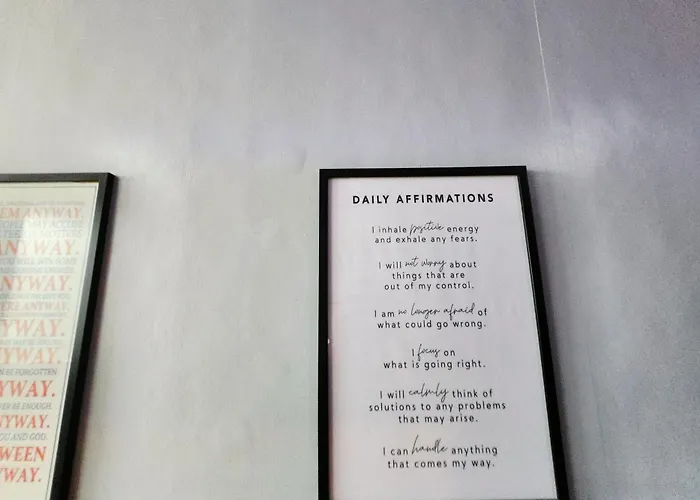 EM ANYWAY.
MAY ACCUSE
MOTIVES
ANYWAY.
ANYWAY.
ERE ANYWAY.
YWAY.
YWAY.
BE FORGOTTEN
YWAY.
ER BE ENOUGH.
YWAY.
OU AND GOD.
WEEN
YWAY.
DAILY AFFIRMATIONS
I inhale positive energy
and exhale any fears.
I will not worry about
things that are
out of my control.
I am no longer afraid of
what could go wrong.
I focus on
what is going right.
I will calmly think of
solutions to any problems
that may arise.
I can handle anything
that comes my way.